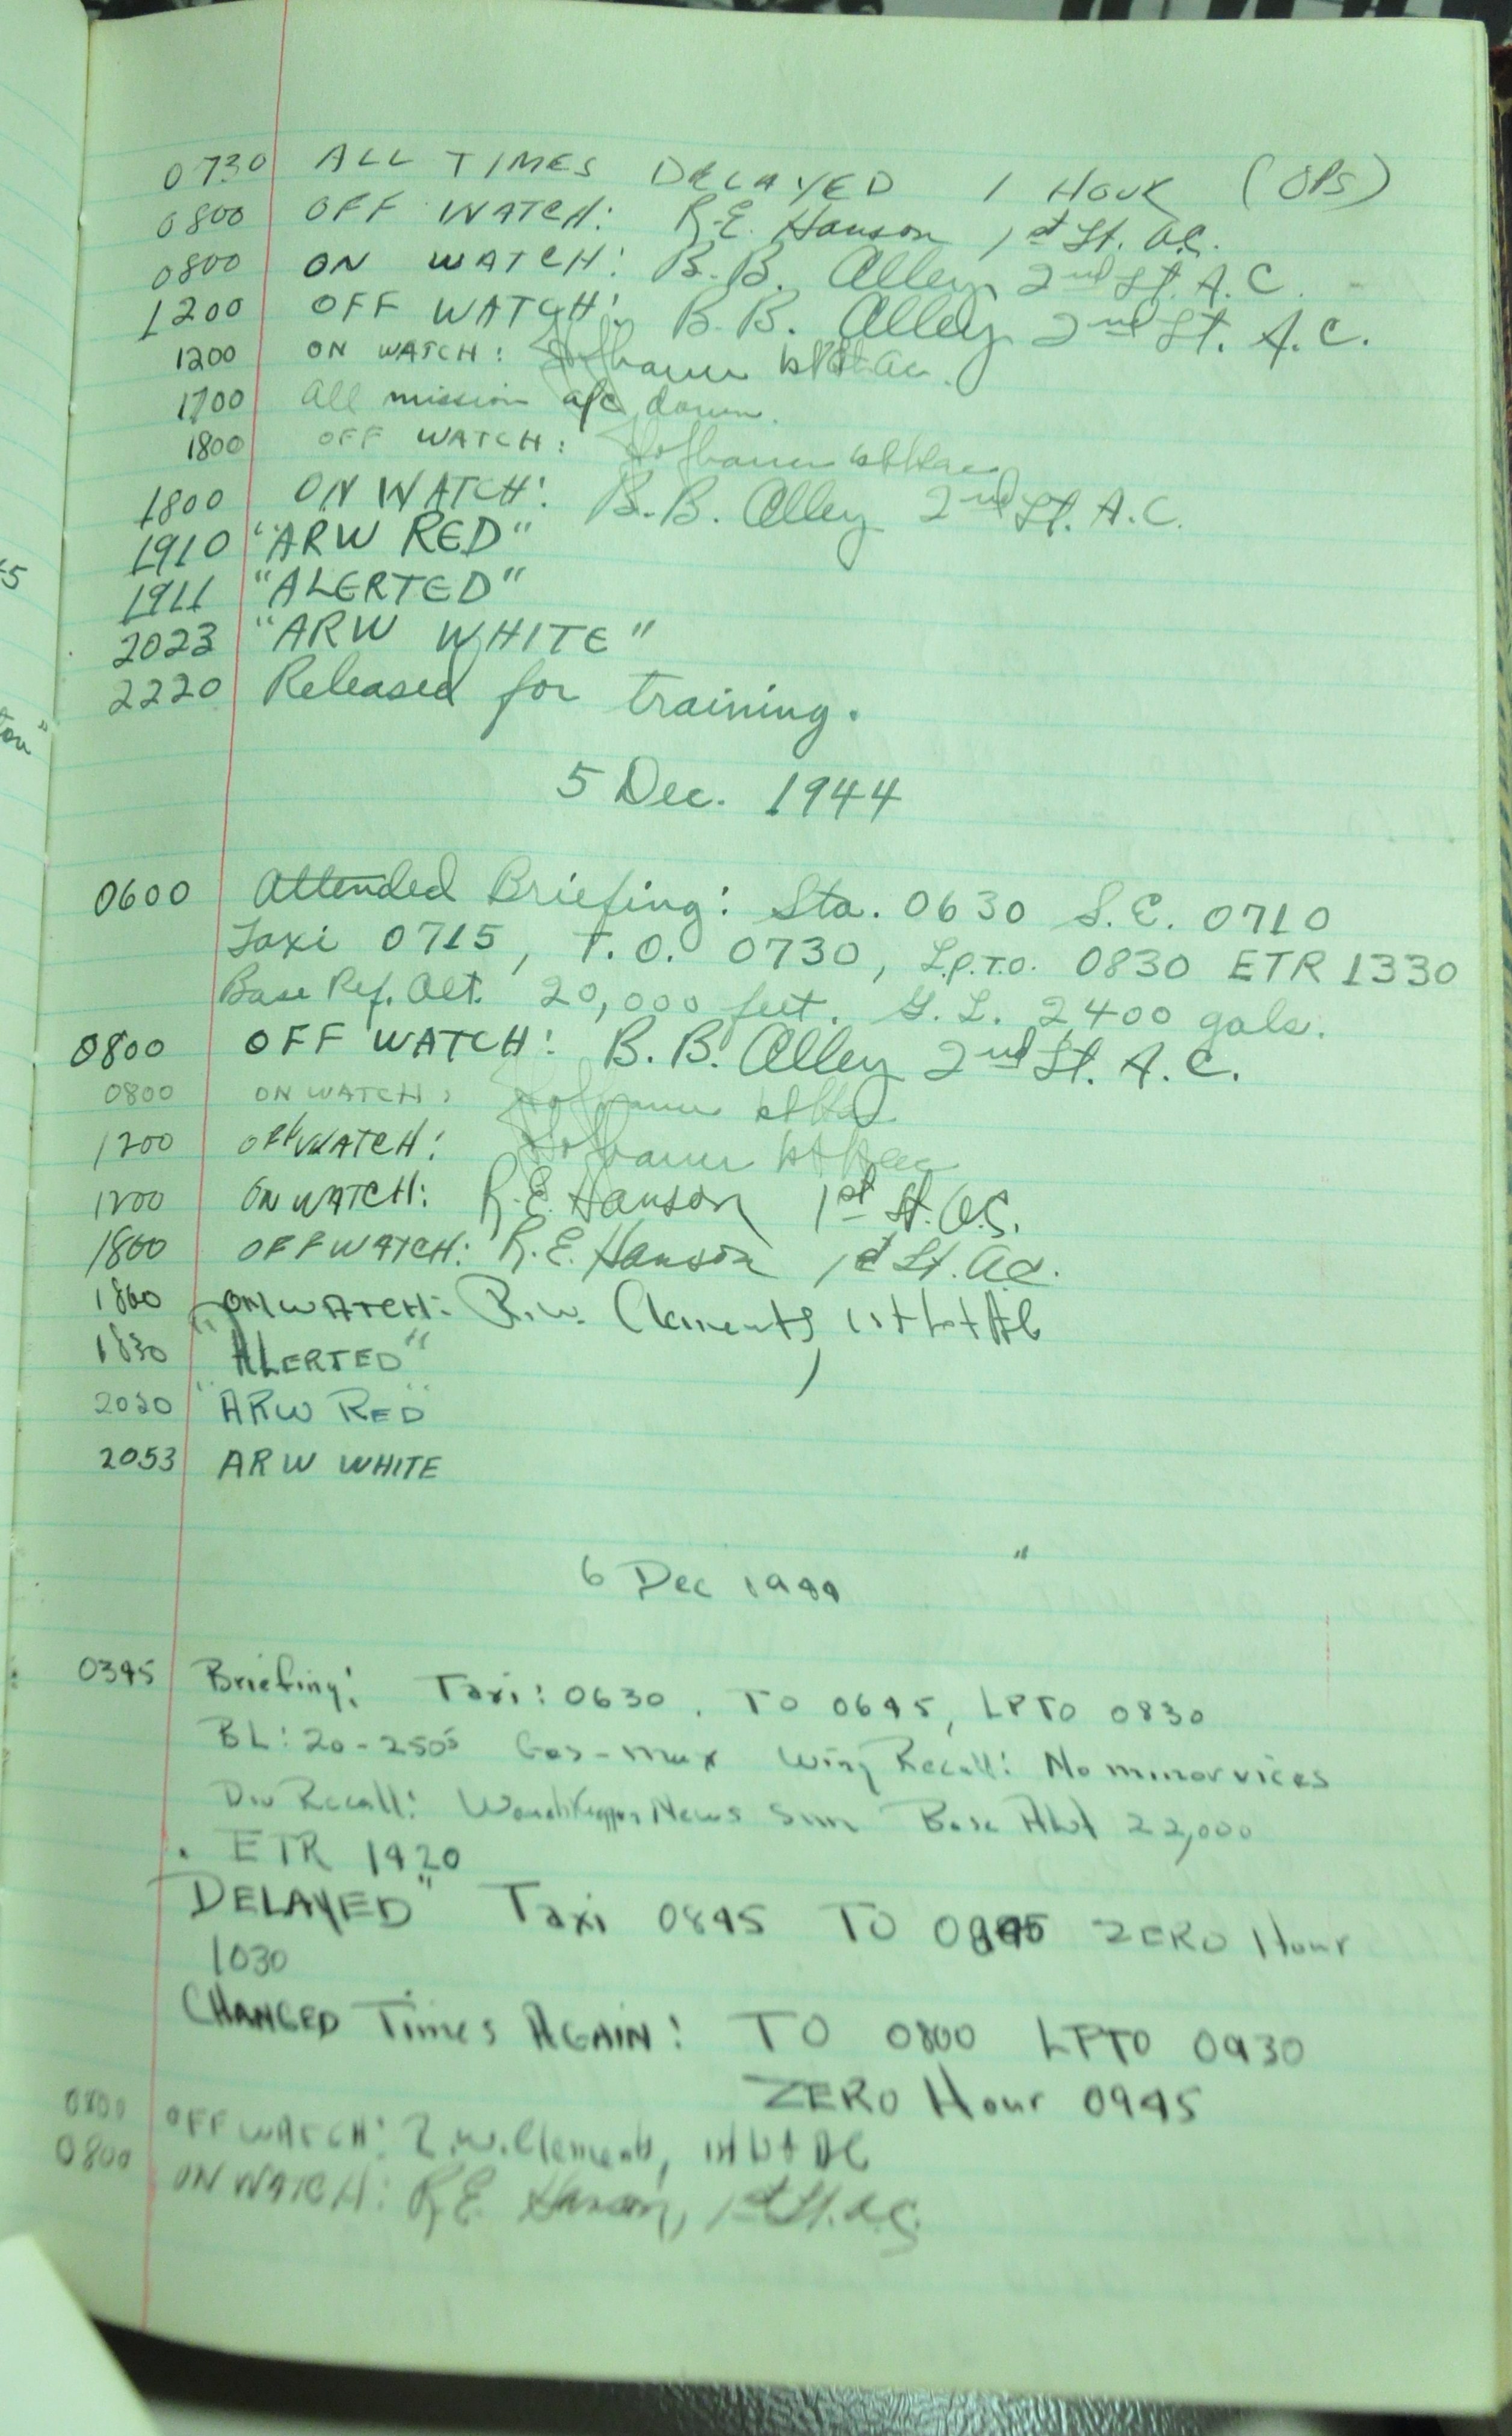 0730 ALL TIMES DELAYED 1 HOUR (OPS)
0800 OFF WATCH: R.E. Hanson 1st Lt. A.C.
0800 ON WATCH: B.B. Alley 2nd Lt. A.C.
1200 OFF WATCH: B.B. Alley 2nd Lt. A.C.
1200 ON WATCH:
1700 All mission a/c down.
1800 OFF WATCH:
1800 ON WATCH: B.B. Alley 2nd Lt. A.C.
1910 "ARW RED"
1911 "ALERTED"
2023 "ARW WHITE"
2220 Released for training.
5 Dec. 1944
0600 Attended Briefing: Sta. 0630 S.E. 0710
Taxi 0715, T.O. 0730, L.P.T.O. 0830 ETR 1330
Base Ref. Alt. 20,000 feet. G.L. 2400 gals.
0800 OFF WATCH: B.B. Alley 2nd Lt. A.C.
0800 ON WATCH:
1200 OFF WATCH:
1200 ON WATCH: R.E. Hanson 1st Lt. A.C.
1800 OFF WATCH: R.E. Hanson 1st Lt. A.C.
1800 ON WATCH: R.W. Clements, 1st Lt AC
1830 "ALERTED"
"ARW RED"
2053 ARW WHITE
6 Dec 1944
0345 Briefing: Taxi: 0630. TO 0645, LPTO 0830
BL: 20-250's Gas-max Wing Recall: No minor vices
Div Recall: News Sun Base Alt 22,000
ETR 1420
DELAYED" Taxi 0845 TO ZERO Hour
1030
CHANGED Times AGAIN: TO 0800 LPTO 0930
ZERO Hour 0945
0800 OFF WATCH: R.W. Clements, 1st Lt AC
0800 ON WATCH: R.E. Hanson, 1st Lt. A.C.